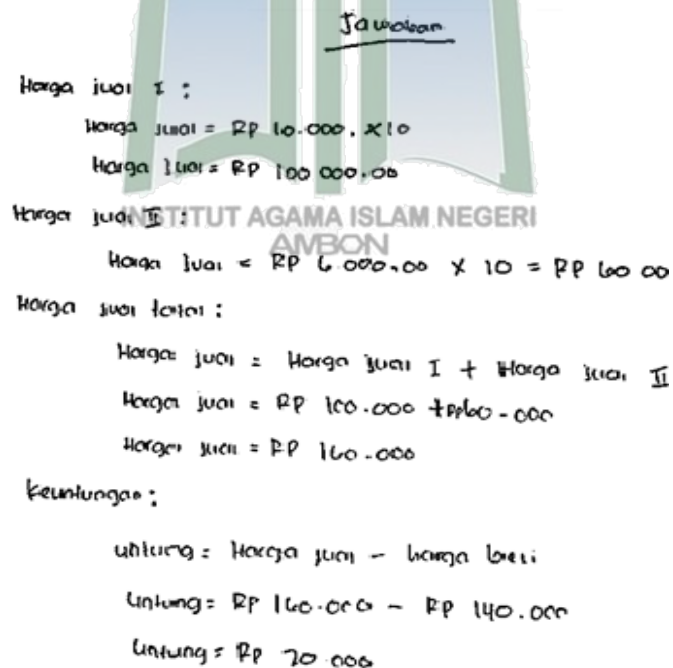 Jawaban
Harga jual I :
Harga jual = RP 10.000, x 10
Harga jual = RP 100 000,00
Harga jual II :
INSTITUT AGAMA ISLAM NEGERI
AMBON
Harga jual = RP 6.000,00 X 10 = RP 60 00
Harga jual total :
Harga jual = Harga jual I + Harga jual II
Harga jual = RP 100.000 + RP 60-000
Harga jual = RP 160-000
keuntungan :
untung = Harga jual – harga beli
Untung = RP 160.000 – RP 140.000
Untung = Rp 20 000